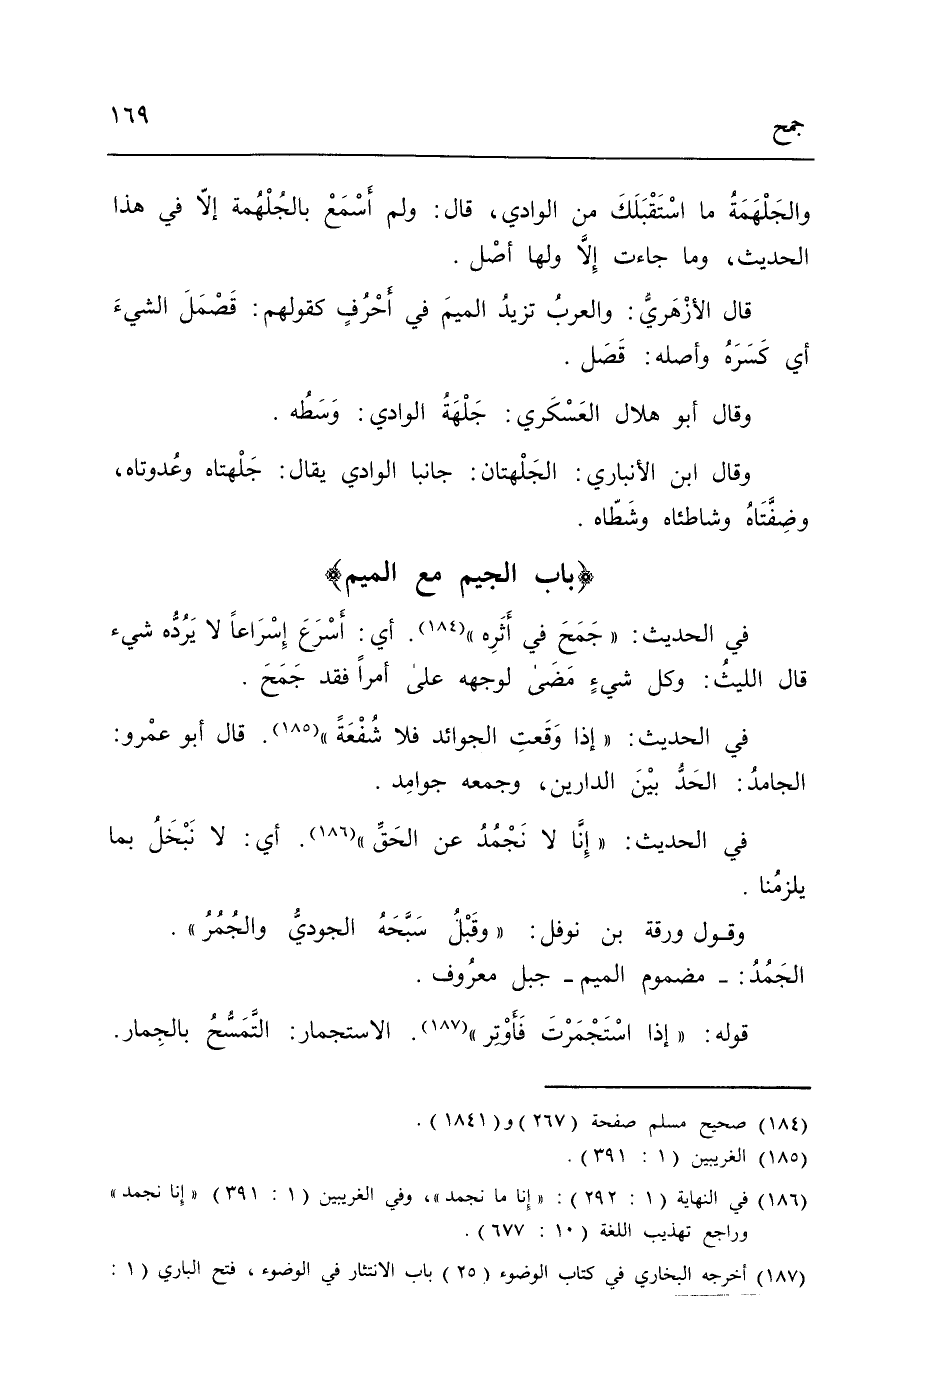 جمح
١٦٩
والجَلْهَمَةُ ما اسْتَقْبَلَكَ من الوادي، قال: ولم أَسْمَعْ بالجُلْهُمة إلّا في هذا
الحديث، وما جاءت إِلاَّ ولها أصْل .
قال الأزْهَريُّ: والعربُ تزيدُ الميمَ في أَحْرُفٍ كقولهم: قَصْمَلَ الشيءَ
أي كَسَرَهُ وأصله: قَصَل .
وقال أبو هلال العَسْكَري: جَلْهَةُ الوادي: وَسَطُه .
وقال ابن الأنباري: الجَلْهتان: جانبا الوادي يقال: جَلْهتاه وعُدوتاه،
وضِفَّتَاهُ وشاطئاه وشَطّاه .
﴿باب الجيم مع الميم﴾
في الحديث: « جَمَحَ في أَثَرِه »(١٨٤). أي: أَسْرَعَ إِسْرَاعاً لا يَرُدُّه شيء
قال الليثُ: وكل شيءٍ مَضَىٰ لوجهه علىٰ أمراً فقد جَمَحَ .
في الحديث: « إذا وَقَعتِ الجوائد فلا شُفْعَةً »(١٨٥). قال أبو عمْرو:
الجامدُ: الحَدُّ بيْنَ الدارين، وجمعه جوامِد .
في الحديث: « إِنَّا لا نَجْمُدُ عن الحَقِّ »(١٨٦). أي: لا نَبْخَلُ بما
يلزمُنا .
وقـول ورقة بن نوفل: « وقَبْلُ سَبَّحَهُ الجوديُّ والجُمُرُ » .
الجَمُدُ: ـ مضموم الميم ـ جبل معرُوف .
قوله: « إذا اسْتَجْمَرْتَ فَأَوْتِر »(١٨٧). الاستجمار: التَّمَسُّحُ بالجِمار.
(١٨٤) صحيح مسلم صفحة (٢٦٧) و(١٨٤١) .
(١٨٥) الغريبين (١ : ٣٩١) .
(١٨٦) في النهاية (١ : ٢٩٢) : « إنا ما نجمد »، وفي الغريبين (١ : ٣٩١) « إنا نجمد »
وراجع تهذيب اللغة (١٠ : ٦٧٧) .
(١٨٧) أخرجه البخاري في كتاب الوضوء (٢٥) باب الانتثار في الوضوء ، فتح الباري (١ :